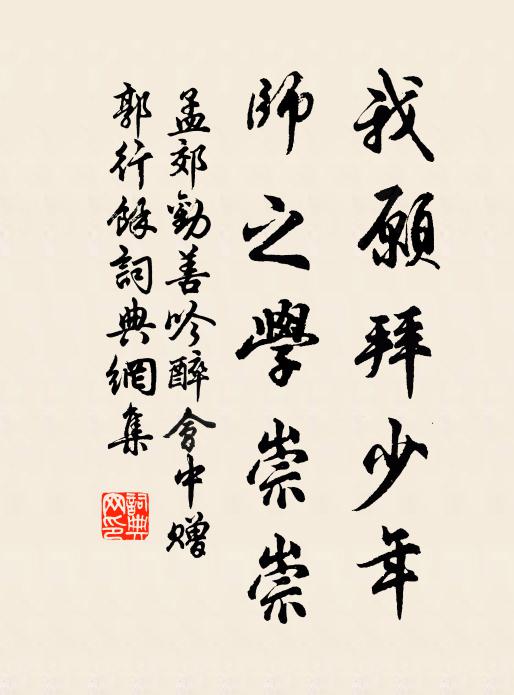 我願拜少年
師之學崇崇
孟郊勸善吟醉會中贈
郭行餘詞典網集
詞典網印